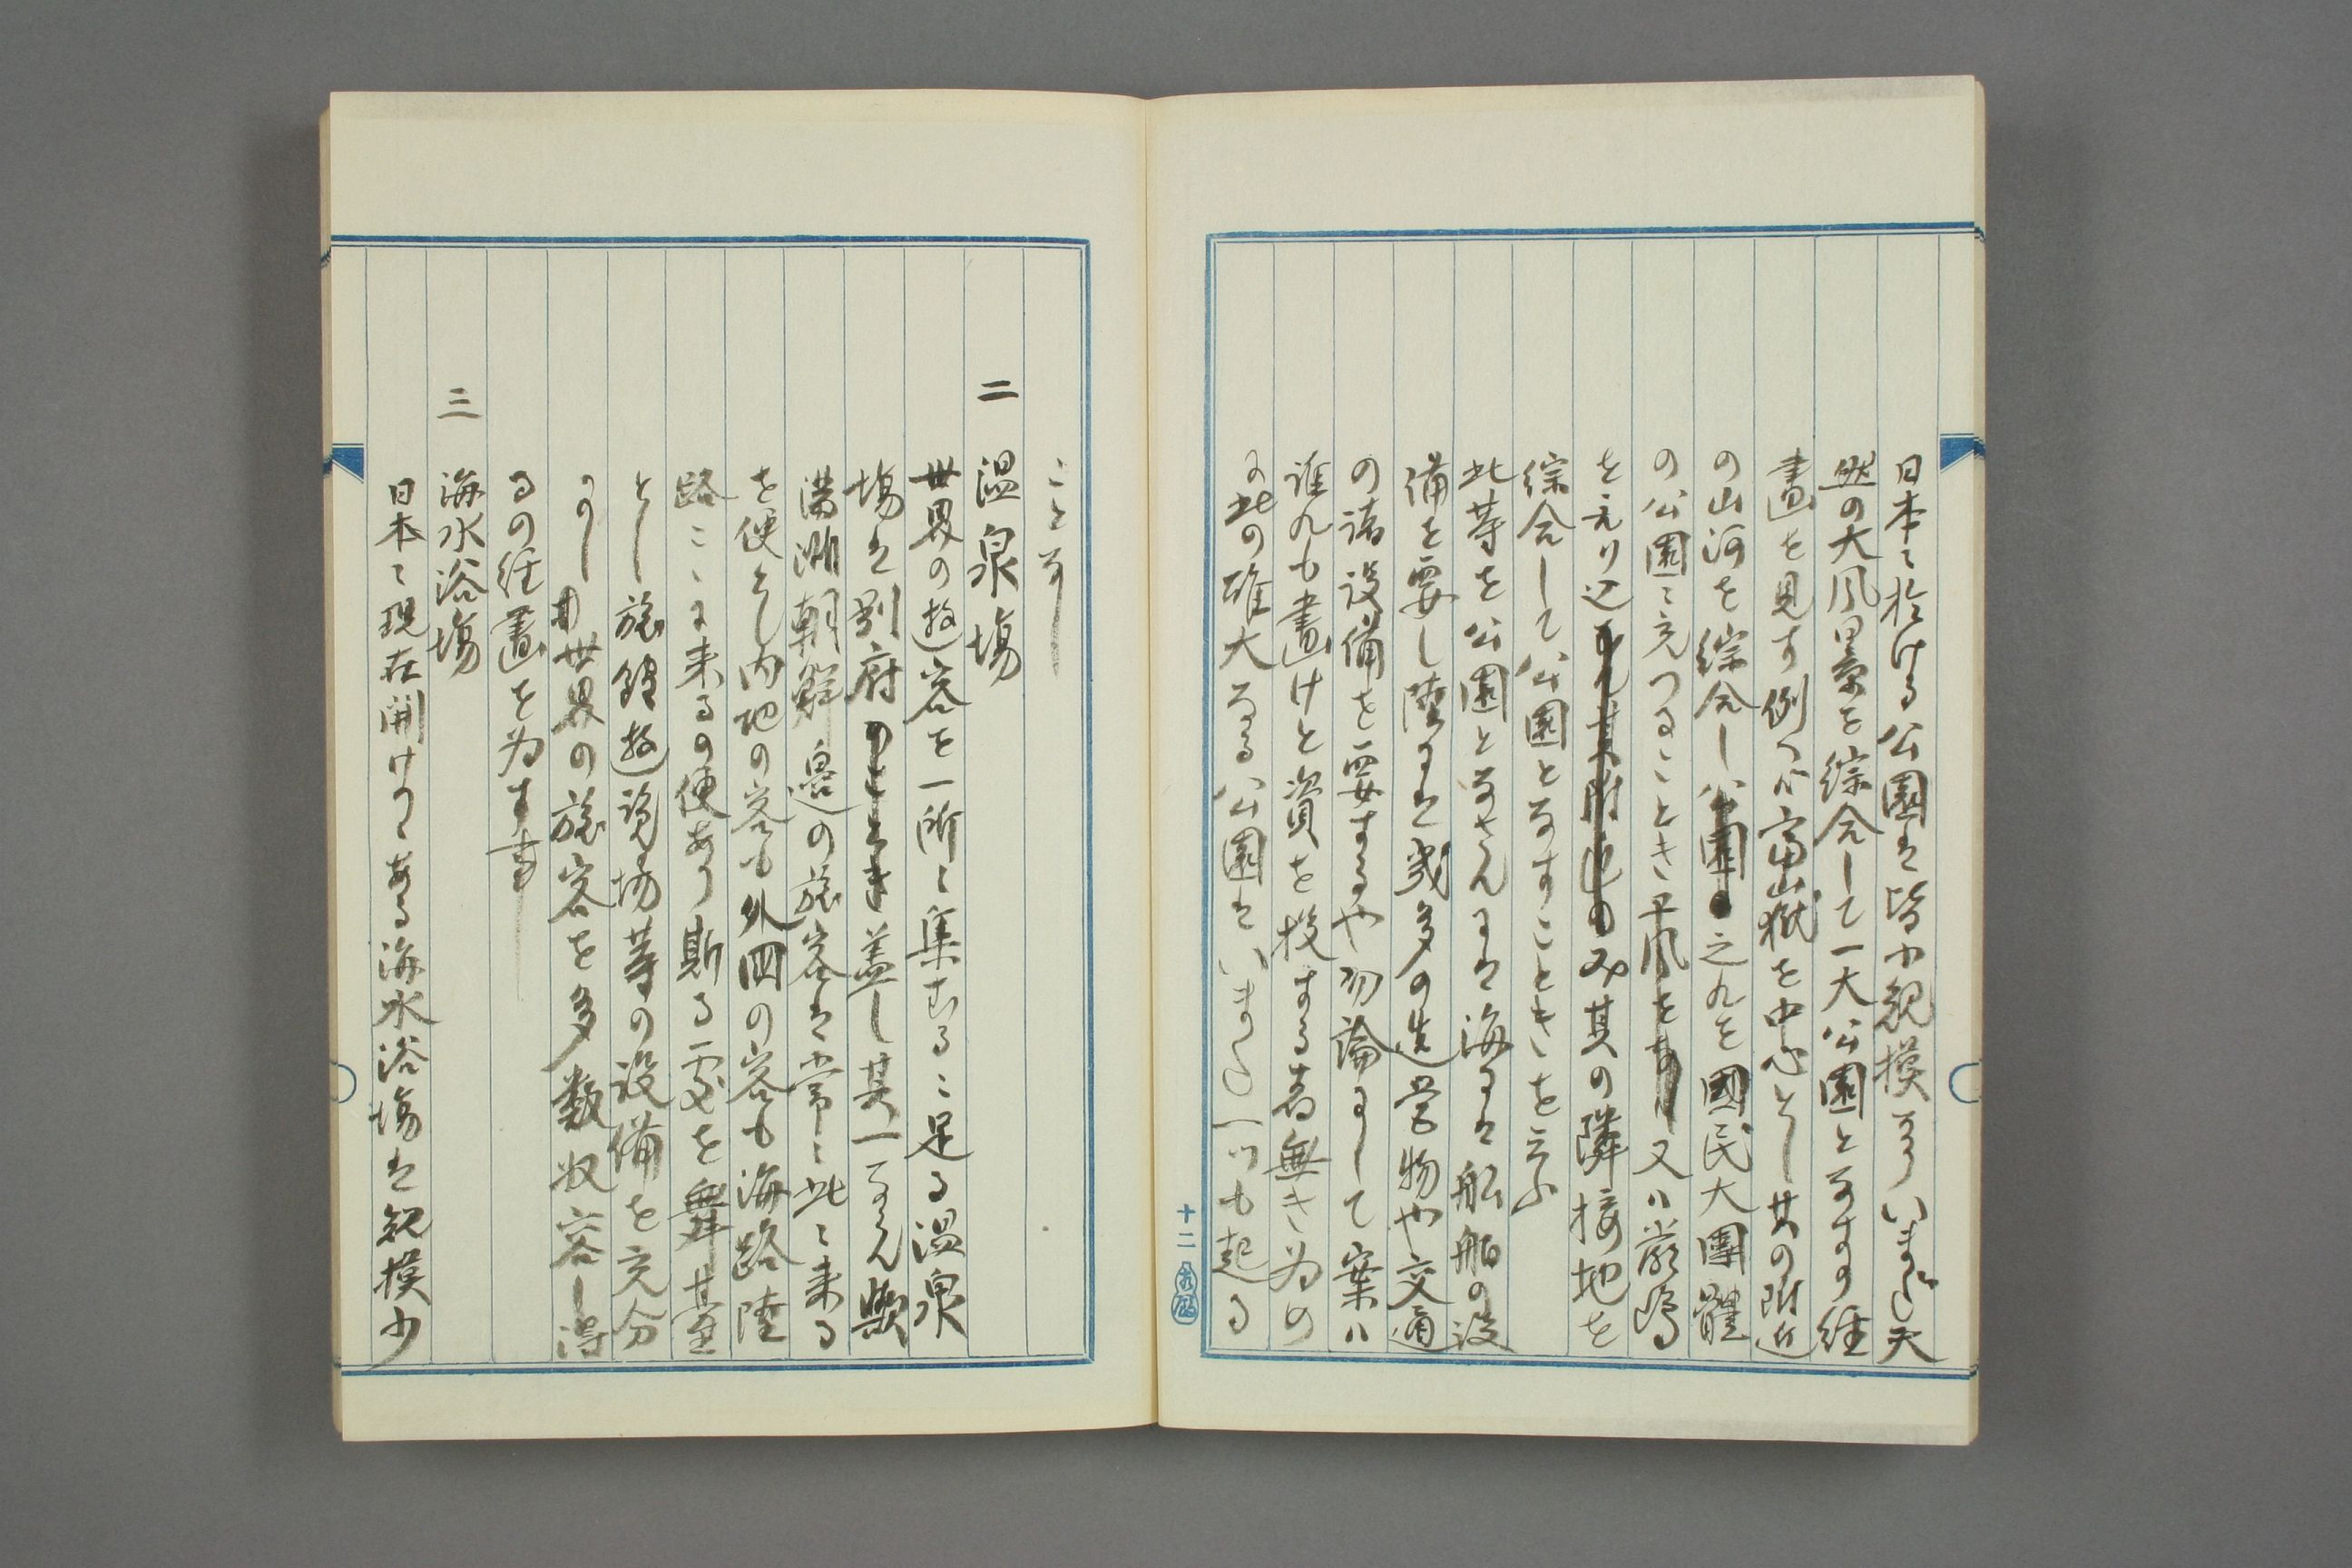 日本に於ける公園は皆小規模なりいまだ天
然の大風景を綜合して一大公園となすの経
畫を見す例へバ富嶽を中心とし其の附近
の山河を綜合し公園の之れを國民大團體
の公園に充つることき又ハ嚴嶋
のみ其の隣接地を
綜合して公園となすことき を云ふ
此等を公園となさんには海には船舶の設
備を要し陸には幾多の造営物や交通
の諸設備を要するや勿論にして案ハ
誰れも畫けと資を投する者無き為め
に此の雄大なる公園はいまだ一つも起る
十二
ことなし
二 温泉場
世界の遊客を一所に集むるに足る温泉
場は別府 蓋し其一ならん歟
満洲朝鮮邊の旅客は常に此に来る
を便とし内地の客も外国の客も海路陸
路こゝに来るの便あり斯る一处を舞臺
とし旅館遊覧場等の設備を充分
にし 世界の旅客を多数収容し得
るの経畫を為す事
三 海水浴場
日本に現在開けつゝある海水浴場は規模少